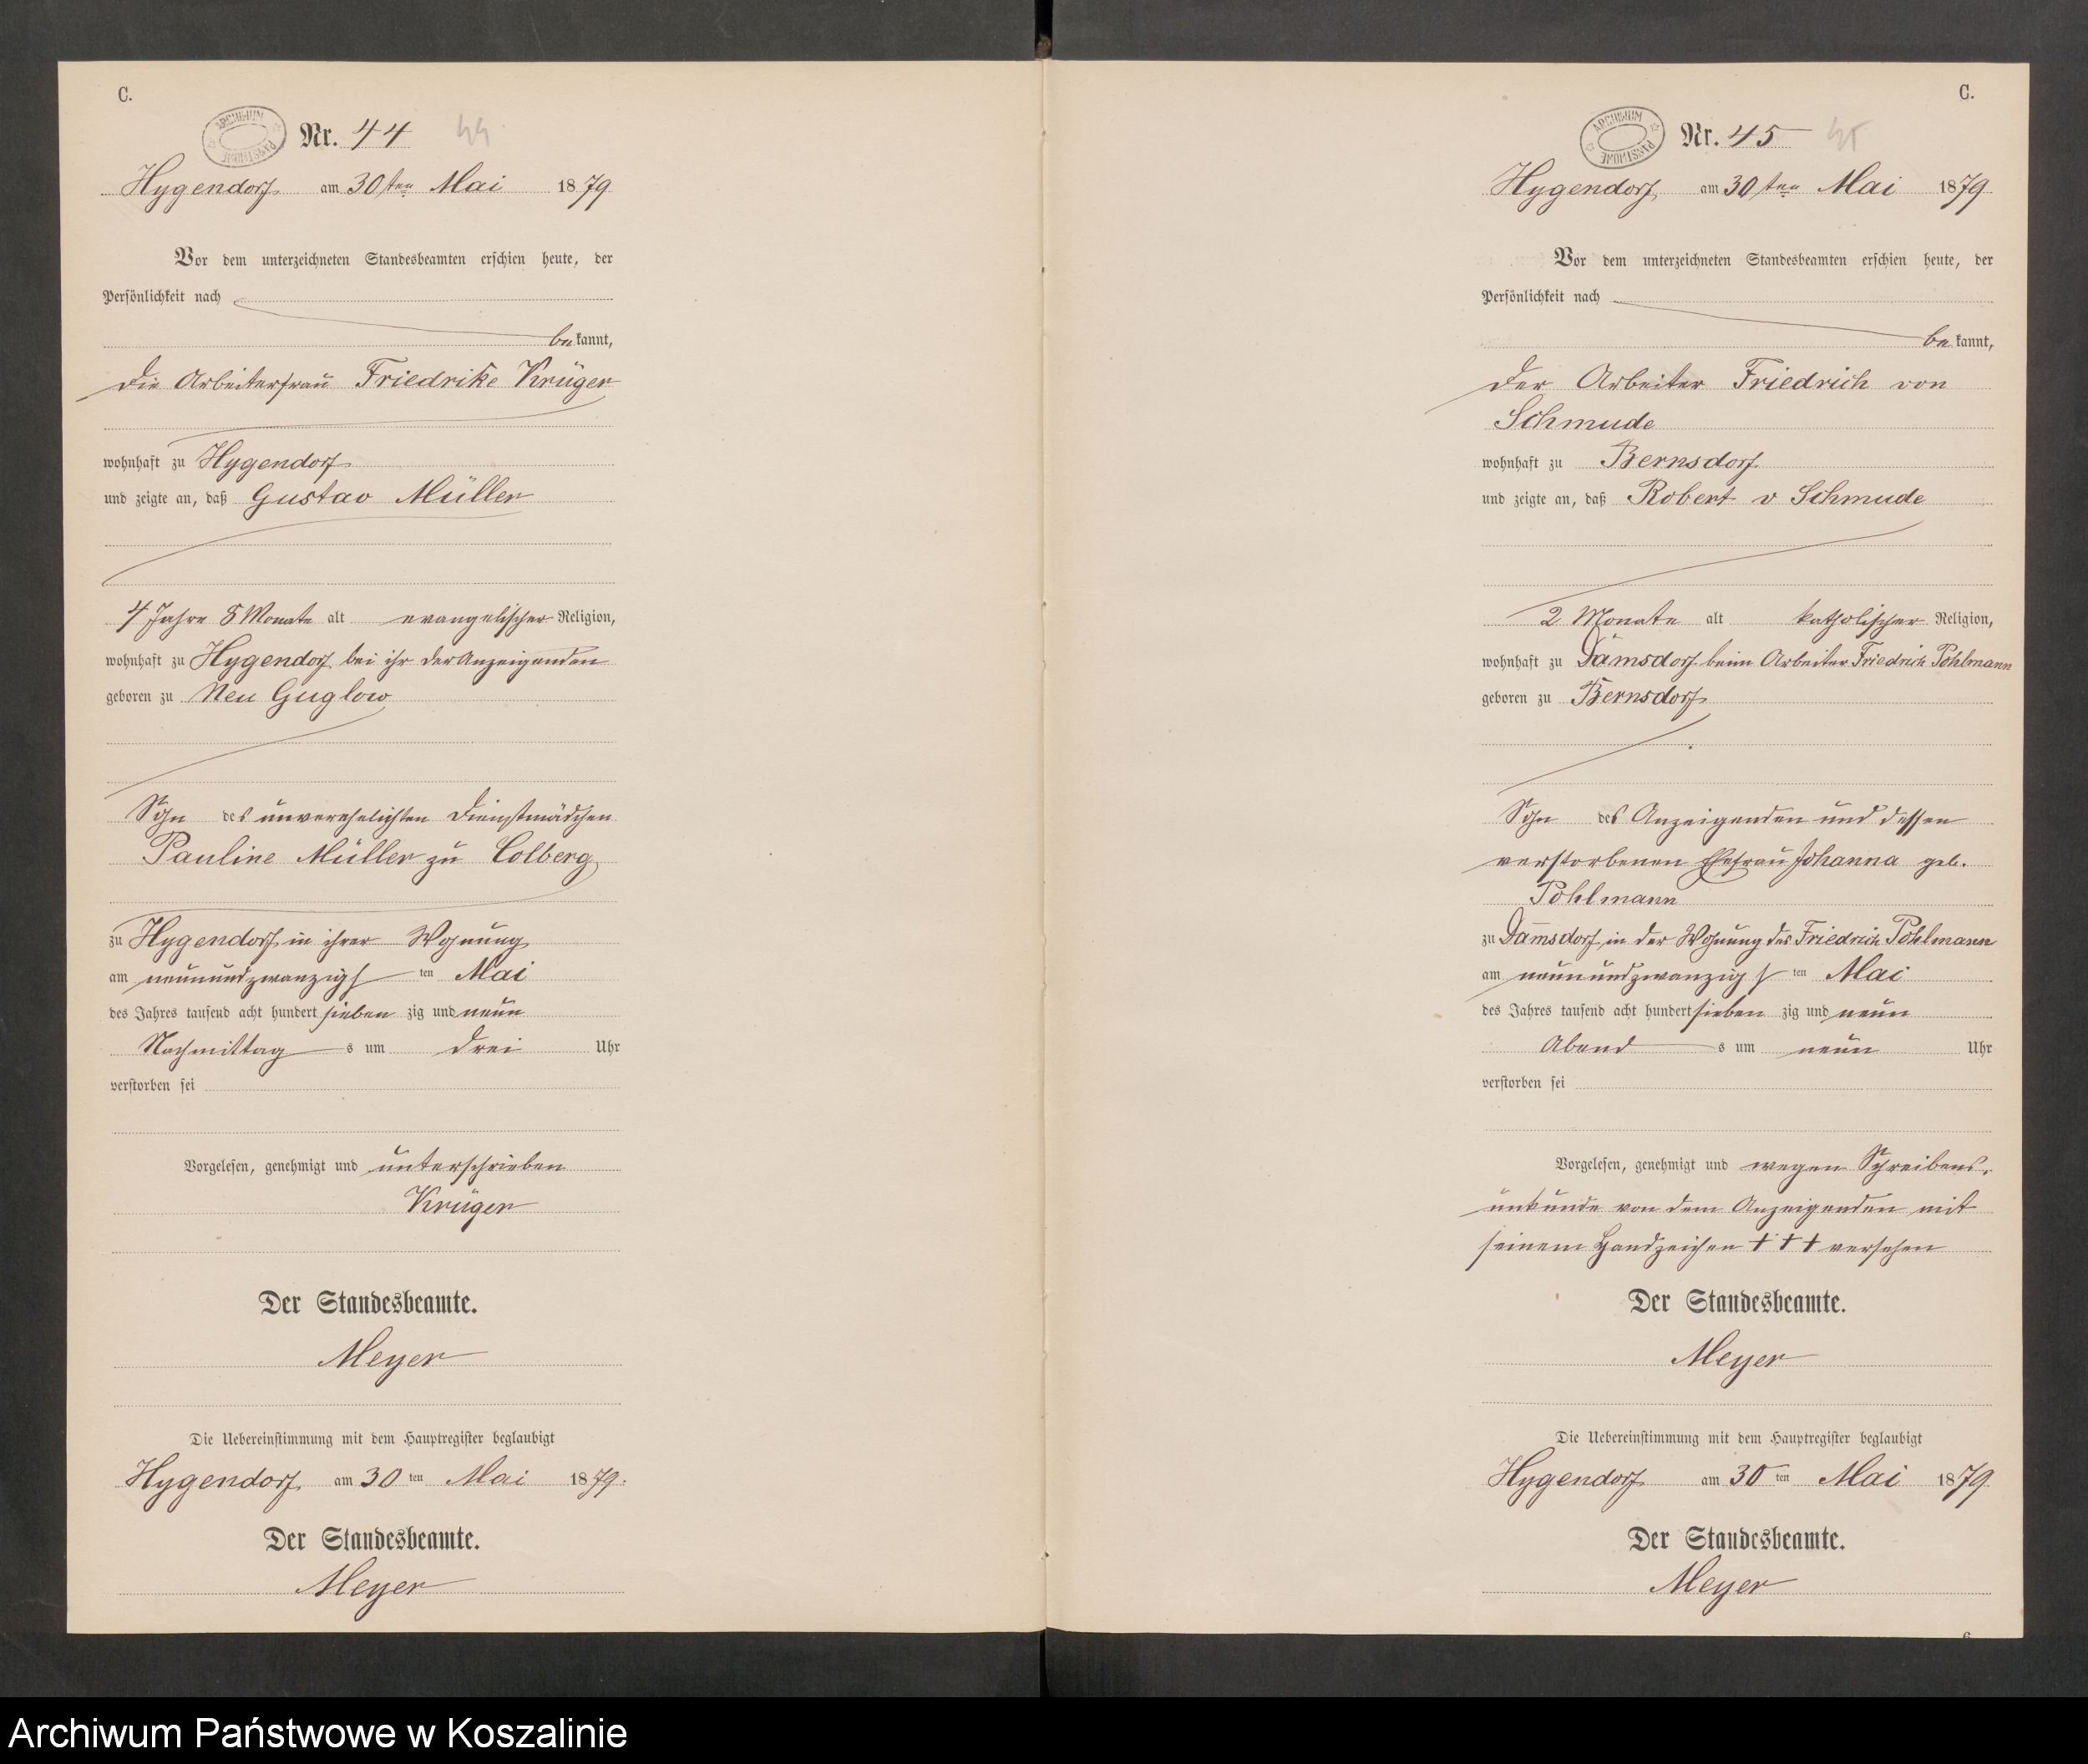 C.
ARCHIWUM PAŃSTWOWE
Nr. 44 44
Hygendorf am 30ten Mai 1879
Vor dem unterzeichneten Standesbeamten erschien heute, der
Persönlichkeit nach
bekannt,
die Arbeiterfrau Friedrike Krüger
wohnhaft zu Hygendorf
und zeigte an, daß Gustav Müller
4 Jahre 8 Monate alt evangelischer Religion,
wohnhaft zu Hygendorf bei ihr der Anzeigenden
geboren zu Neu Guglow
Sohn des unverehelichten Dienstmädchen
Pauline Müller zu Colberg
zu Hygendorf in ihrer Wohnung
am neunundzwanzigsten Mai
des Jahres tausend acht hundert siebenzig und neun
Nachmittags um drei Uhr
verstorben sei
Vorgelesen, genehmigt und unterschrieben
Krüger
Der Standesbeamte.
Meyer
Die Uebereinstimmung mit dem Hauptregister beglaubigt
Hygendorf am 30ten Mai 1879.
Der Standesbeamte.
Meyer
C.
ARCHIWUM PAŃSTWOWE
Nr. 45 45
Hygendorf am 30ten Mai 1879
Vor dem unterzeichneten Standesbeamten erschien heute, der
Persönlichkeit nach
bekannt,
der Arbeiter Friedrich von
Schmude
wohnhaft zu Bernsdorf
und zeigte an, daß Robert v Schmude
2 Monate alt katholischer Religion,
wohnhaft zu Damsdorf beim Arbeiter Friedrich Pöhlmann
geboren zu Bernsdorf
Sohn des Anzeigenden und dessen
verstorbenen Ehefrau Johanna geb.
Pöhlmann
zu Damsdorf in der Wohnung des Friedrich Pöhlmann
am neunundzwanzigsten Mai
des Jahres tausend acht hundert siebenzig und neun
Abends um neun Uhr
verstorben sei
Vorgelesen, genehmigt und wegen Schreibens-
unkunde von dem Anzeigenden mit
seinem Handzeichen + + + versehen
Der Standesbeamte.
Meyer
Die Uebereinstimmung mit dem Hauptregister beglaubigt
Hygendorf am 30ten Mai 1879
Der Standesbeamte.
Meyer
Archiwum Państwowe w Koszalinie